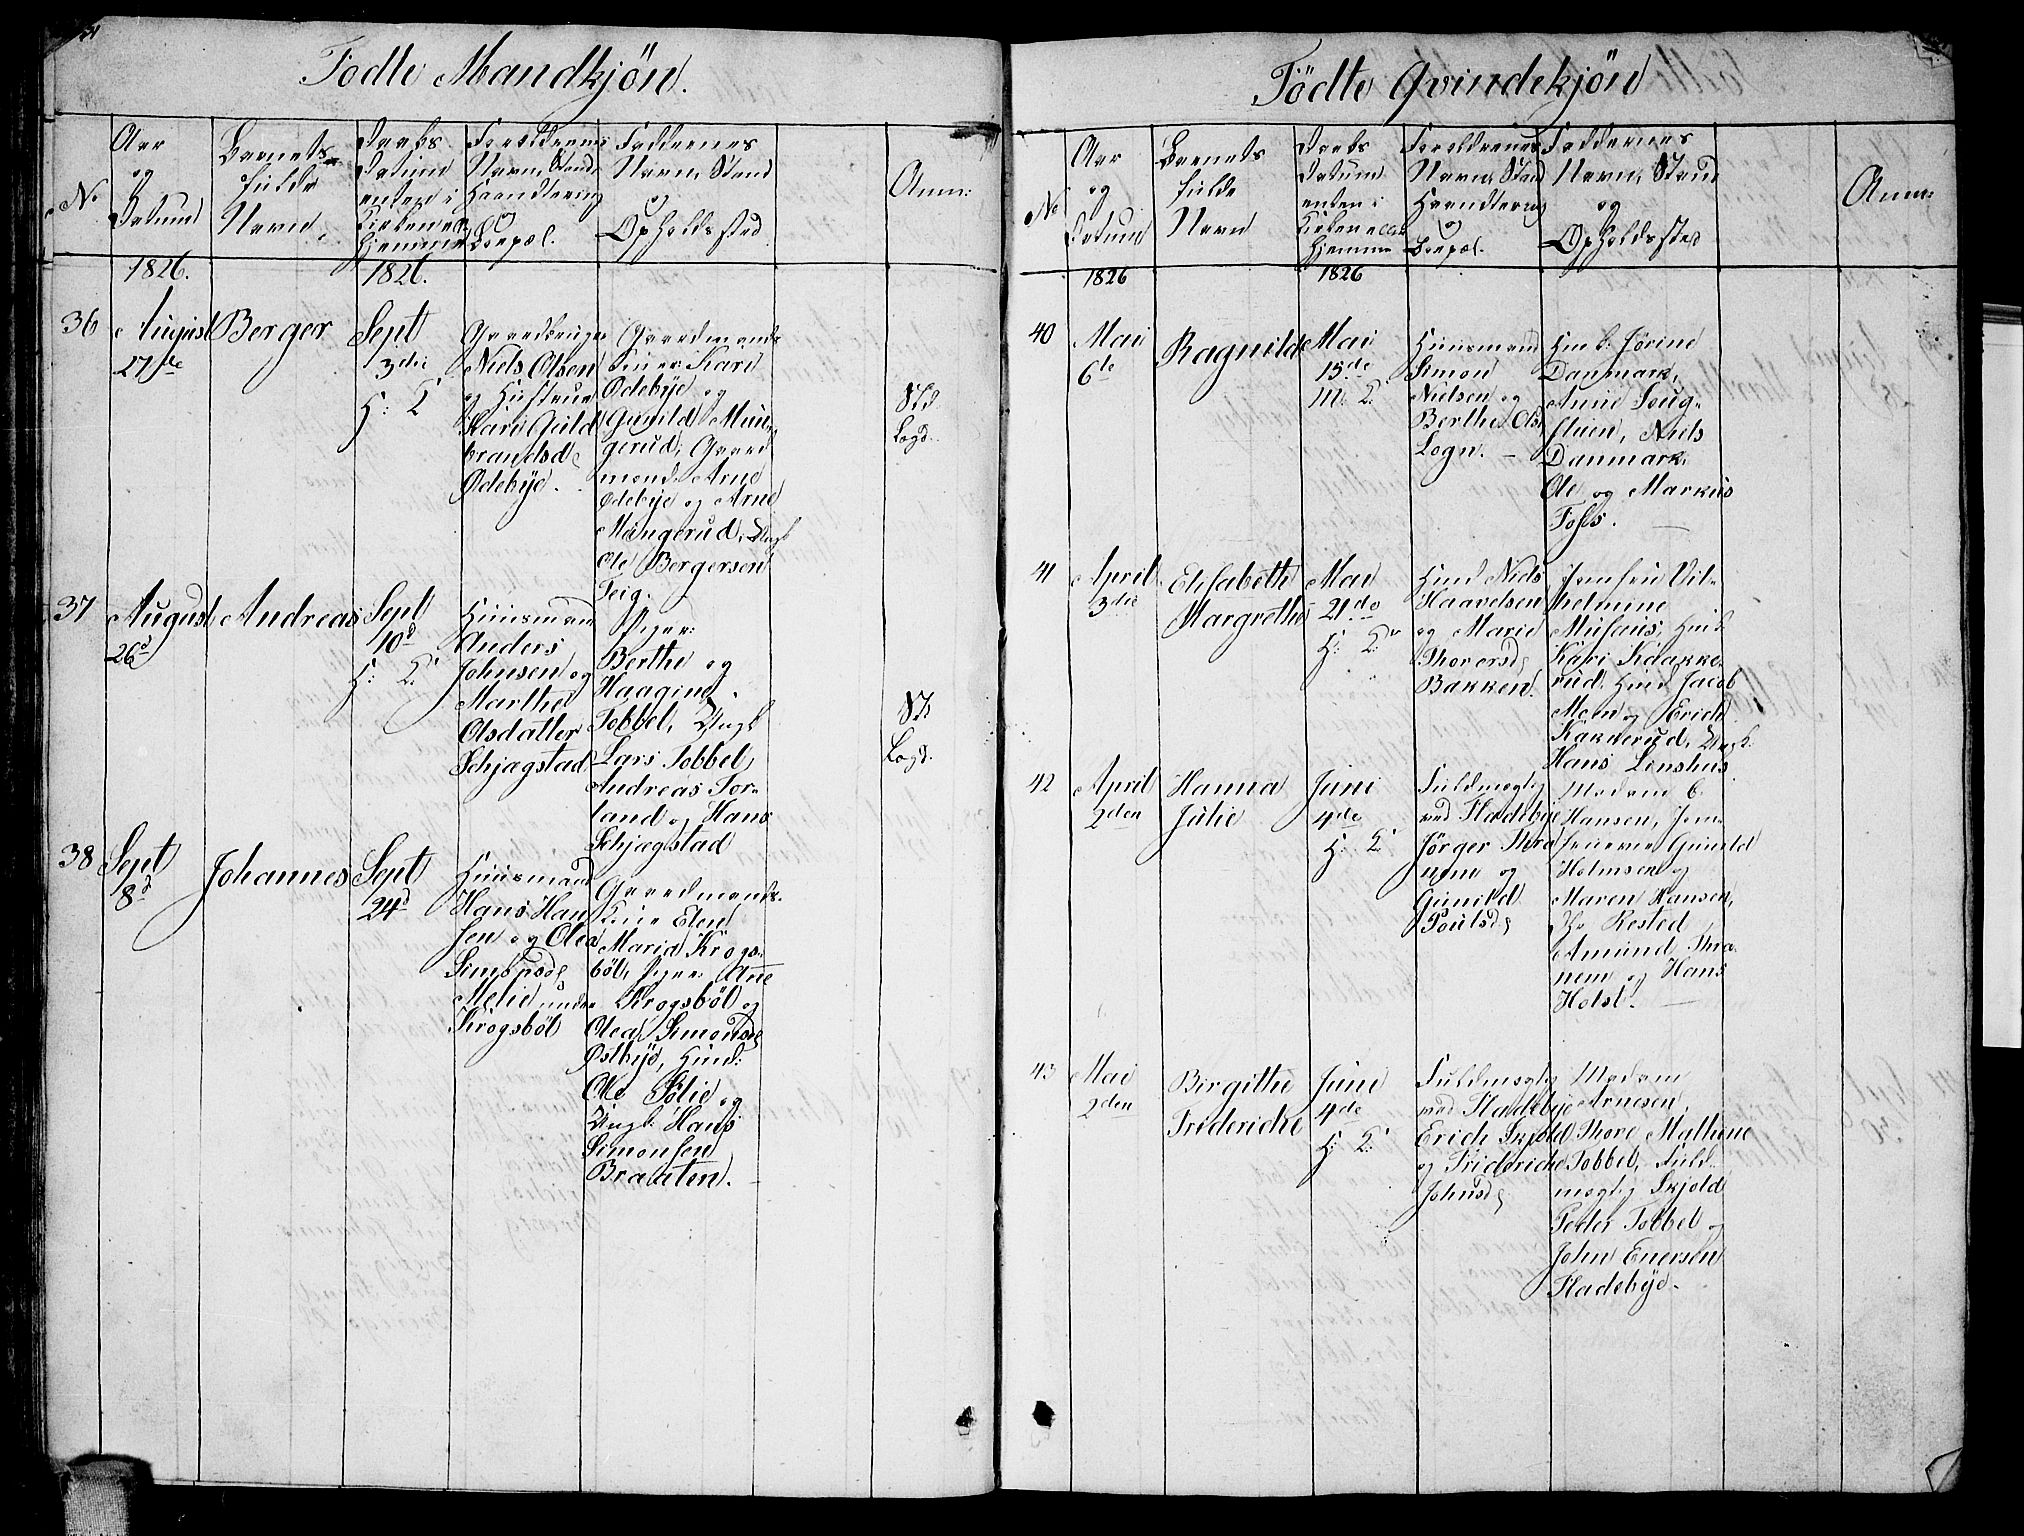 Fødte Mandkjön.
No
Aar
og
Datum
Barnets
fulde
Navn.
Daabs
Datum
enten i
Kirken eller
Hjemme
Foreldrenes
Navn, Stand,
Haandtering
og
Boepæl.
Faddernes
Navn, Stand
og
Opholdssted
Anm:
1826.
1826.
36
August
27de
Berger
Sept
3die
H: K
Gaardbruger
Niels Olsen
og Hustrue
Kari Guld
brandsd.
Ödebye.
Gaardmands
Kari
Ödebye og
Gunild Mun
gerud, Gaard
mand Arne
Ödebye og Arne
Mangerud, Ungk
Ole Bergersen
Teig.
Logd.
37
August
26d
Andreas
Sept
10d
H: K:
Huusmand
Anders
Johnsen og
Marthe
Olsdatter
Schjagstad
Piger:
Berthe og
Haagine
Tobbel, Ungk
Lars Tobbel,
Andreas Tor-
land og Hans
Schjagstad
Logd.
38
Sept
8d
Johannes
Sept
24d
Huusmand
Hans Han
sen og Olea
Simonsd.
Melie under
Krogsböl
Gaardmands-
Kone Elen
Maria Krogs-
böl, Piger: Ane
Krogsböl og
Olea Simonsd.
Östbye, Huusm:
Ole Sölie og
Ungk: Hans
Simonsen
Braaten.
Födte Qvindekjön
No
Aar
og
Datum
Barnets
fulde
Navn
Daabs
Datum
enten i
Kirken eller
Hjemme
Foreldrenes
Navn, Stand
Haandtering
og
Boepæl.
Faddernes
Navn, Stand
og
Opholdssted
Anm:
1826
1826
40
Mai
6de
Ragnilde
Mai
15de
M: K:
Huusmand
Simon
Nielsen og
Berthe Ols.
Logn.
Jørine
Danmark,
Anne Soug-
stuen, Niels
Danmark,
Ole og Markus
Foss.
41
April
3die
Elisabeth
Margrethe
Mai
21de
H: K:
Huusm Niels
Haavelsen
og Marie
Thorersd.
Bakken.
Jomfru Vil-
helmine
Musæus,
Kari Kaakke-
rud. Huusm Jacob
Moen og Erich
Kakkerud, Ungk.
Hans Linshus.
42
April
2den
Hanna
Julie
Juni
4de
H: K:
Fuldmægtig
ved Fladebye
Jørger Thra
nem og
Gunild
Poulsd.
Madam C.
Hansen, Jom-
fruerne Gunild
Holmsen og
Maren Hansen,
Hr Rested,
Amund Thra-
nem og Hans
Holst.
43
Mai
2den
Birgithe
Frideriche
Juni
4de
H: K:
Fuldmægtig
ved Fladebye
Erich Skjold
og Frideriche
Johnsd.
Madam
Arnesen,
Thore Mathine
Tobbel, Fuld-
mægtig Skjold
Peder Tobbel og
John Enersen
Fladebye.